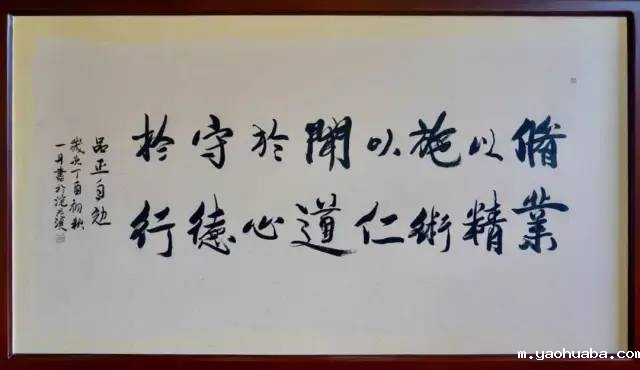 脩業
以精
施術
以仁
聞道
於心
守德
於行
品正自勉
歲次丁酉初秋
一丹書於浣花溪
m.yaohuaba.com